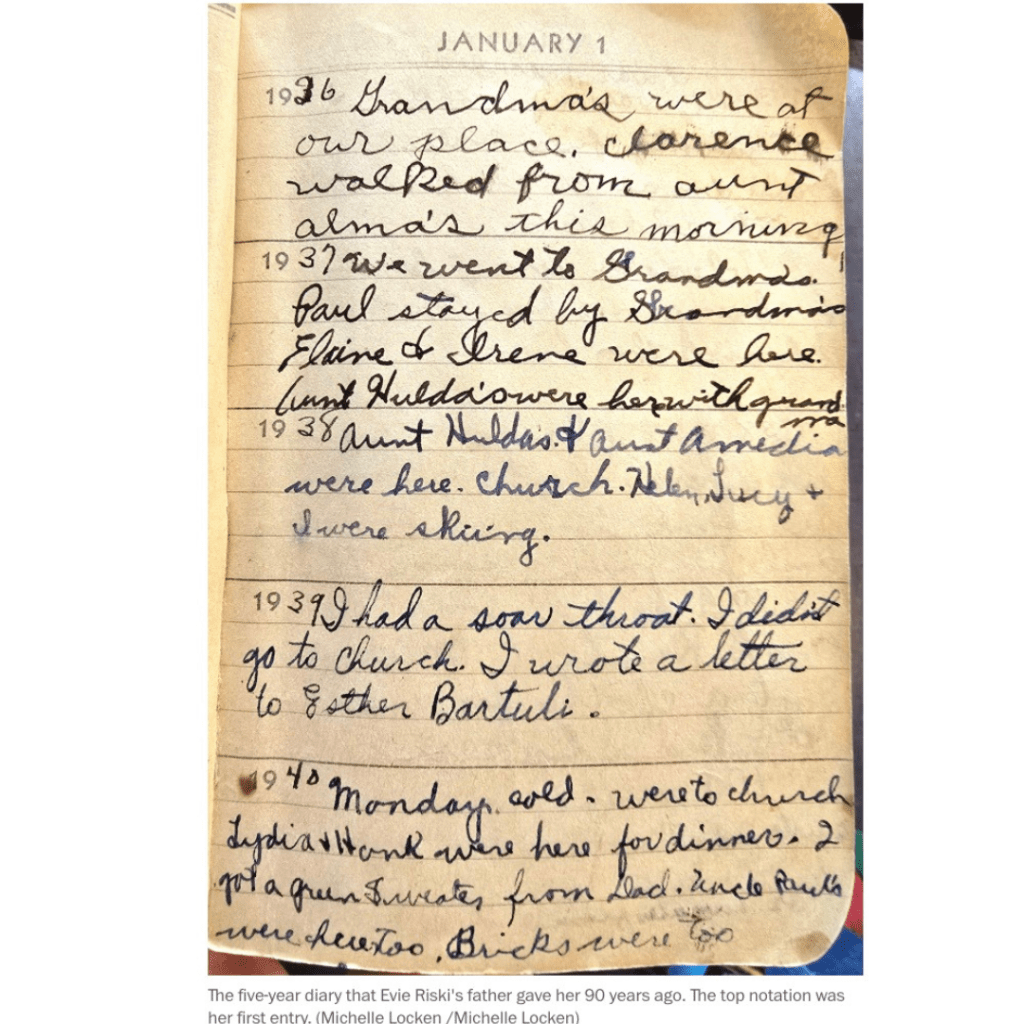 JANUARY 1
1936 Grandma's were at
our place. Clarence
walked from aunt
alma's this morning
1937 We went to Grandma's.
Paul stayed by Grandma's
Elaine & Irene were here.
Aunt Hulda's were here with grand
ma
1938 Aunt Hulda's & Aunt Amedia
were here. Church. Helen, Lucy +
I were skiing.
1939 I had a soar throat. I didn't
go to church. I wrote a letter
to Esther Bartuli.
1940 Monday. cold. were to church
Lydia & Hank were here for dinner. I
got a green sweater from Dad. Uncle Paul's
were here too. Bricks were too
The five-year diary that Evie Riski's father gave her 90 years ago. The top notation was
her first entry. (Michelle Locken /Michelle Locken)